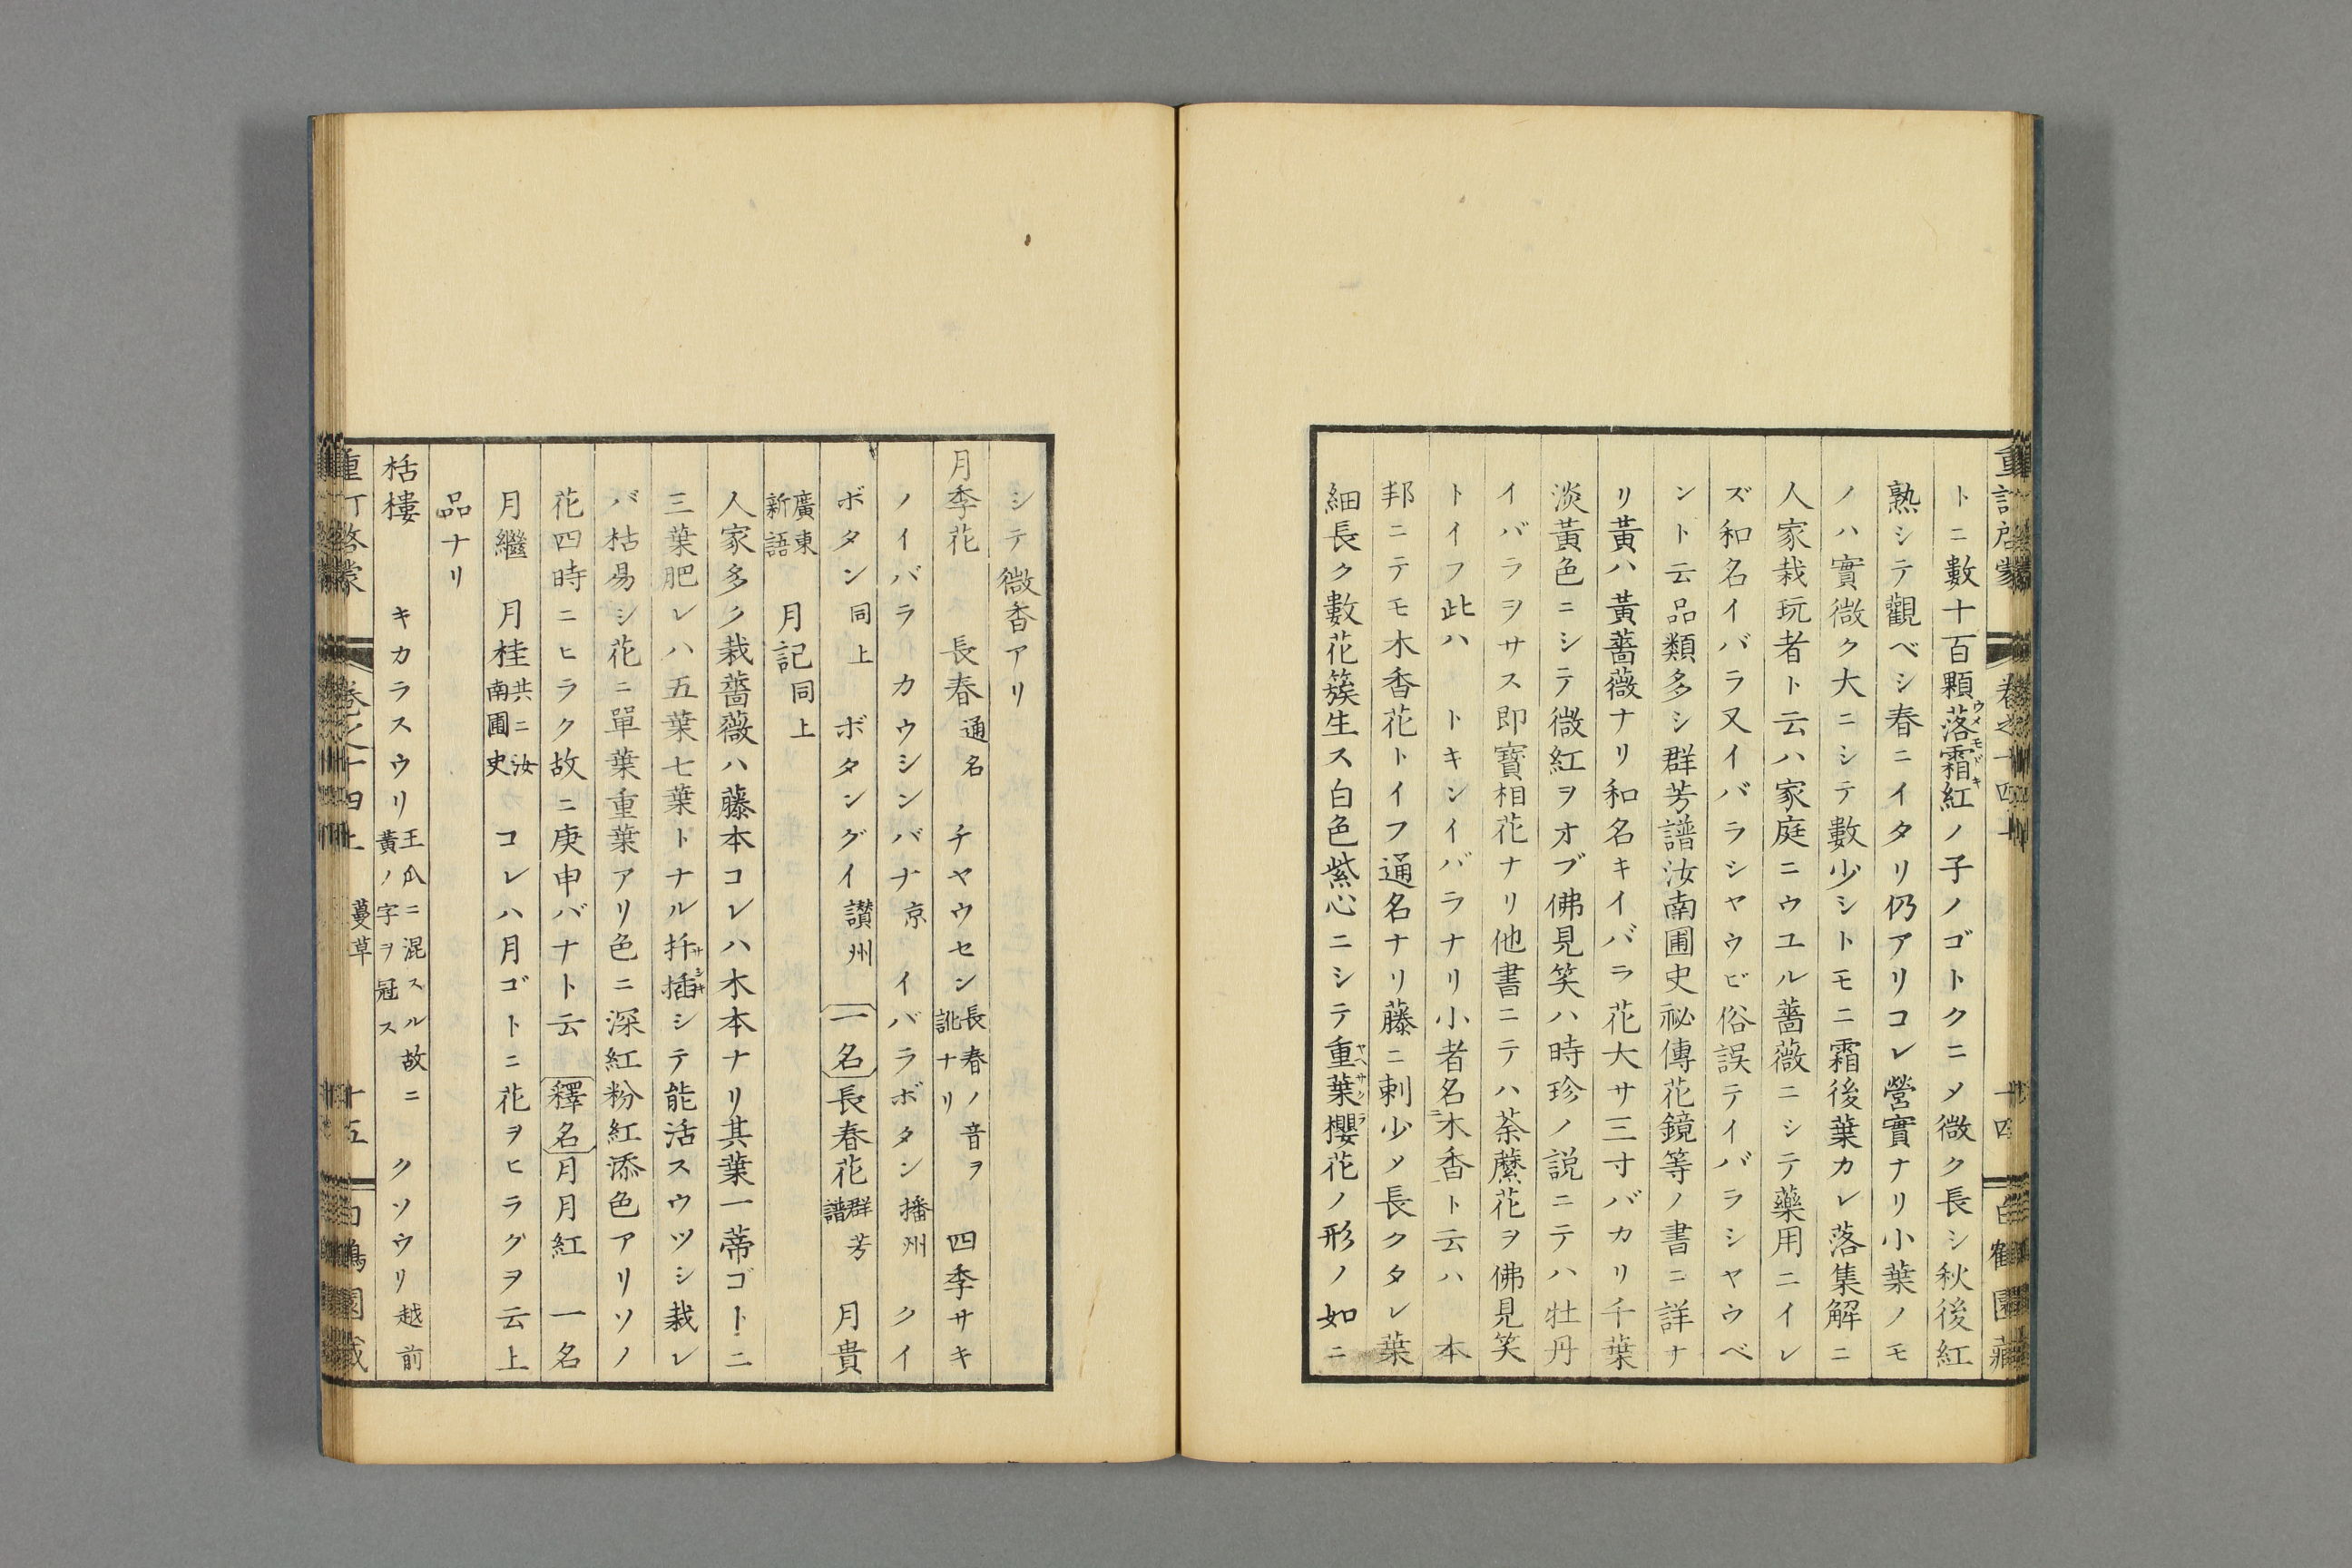 トニ數十百顆落霜紅ノ子ノゴトクニメ微ク長シ秋後紅
ウメモドキ
熟シテ觀ベシ春ニイタリ仍アリコレ營實ナリ小葉ノモ
ノハ實微ク大ニシテ數少シトモニ霜後葉カレ落集解ニ
人家栽玩者ト云ハ家庭ニウユル薔薇ニシテ藥用ニイレ
ズ和名イバラ又イバラシヤウビ俗誤テイバラシヤウベ
ント云品類多シ群芳譜汝南圃史祕傳花鏡等ノ書ニ詳ナ
リ黃ハ黃薔薇ナリ和名キイバラ花大サ三寸バカリ千葉
淡黃色ニシテ微紅ヲオブ佛見笑ハ時珍ノ説ニテハ牡丹
イバラヲサス即寶相花ナリ他書ニテハ荼蘼花ヲ佛見笑
トイフ此ハ トキンイバラナリ小者名木香ト云ハ 本
邦ニテモ木香花トイフ通名ナリ藤ニ刺少メ長クタレ葉
細長ク數花簇生ス白色紫心ニシテ重葉櫻花ノ形ノ如ニ
ヤヘサクラ
シテ微香アリ
月季花 長春 通名 チヤウセン 長春ノ音ヲ訛ナリ 四季サキ
ノイバラ カウシンバナ 京 イバラボタン 播州 クイ
ボタン 同上 ボタングイ 讃州 一名 長春花 群芳譜 月貴
廣東新語 月記 同上
人家多ク栽薔薇ハ藤本コレハ木本ナリ其葉一蒂ゴトニ
三葉肥レハ五葉七葉トナル扦插シテ能活スウツシ栽レ
サシキ
バ枯易シ花ニ單葉重葉アリ色ニ深紅粉紅添色アリソノ
花四時ニヒラク故ニ庚申バナト云 釋名 月月紅 一名
月繼 月桂 共ニ汝南圃史 コレハ月ゴトニ花ヲヒラグヲ云上
品ナリ
栝樓 キカラスウリ 王瓜ニ混スル故ニ黃ノ字ヲ冠ス クソウリ 越前
重訂啓蒙 卷之十四上 蔓草 十五